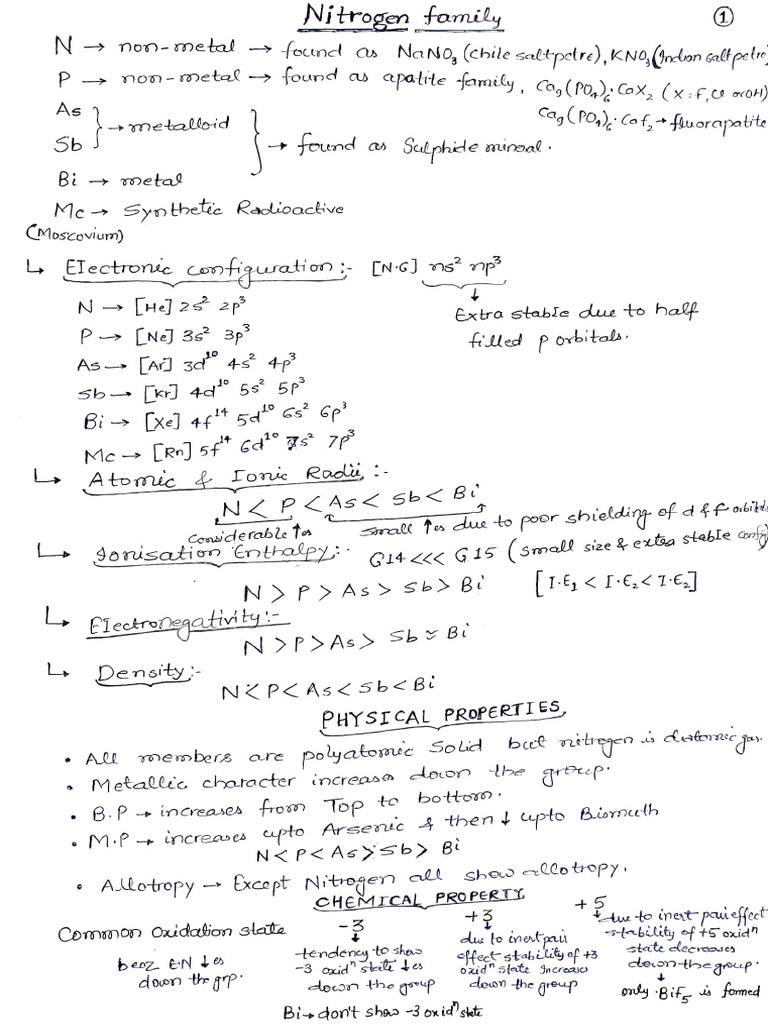 Nitrogen family ①
N → non-metal → found as NaNO3 (chile saltpetre), KNO3 (Indian saltpetre)
P → non-metal → found as apatite family, Ca9(PO4)6·CaX2 (X = F, Cl or OH)
Ca9(PO4)6·CaF2 → fluorapatite
As
Sb
→ metalloid
→ found as Sulphide mineral.
Bi → metal
Mc → Synthetic Radioactive
(Moscovium)
↳ Electronic configuration :- [N·G] ns² np³
N → [He] 2s² 2p³
Extra stable due to half
filled p orbitals.
P → [Ne] 3s² 3p³
As → [Ar] 3d¹⁰ 4s² 4p³
Sb → [Kr] 4d¹⁰ 5s² 5p³
Bi → [Xe] 4f¹⁴ 5d¹⁰ 6s² 6p³
Mc → [Rn] 5f¹⁴ 6d¹⁰ 7s² 7p³
↳ Atomic & Ionic Radii :-
N < P < As < Sb < Bi
Considerable ↑es small ↑es due to poor shielding of d & f orbitals
↳ Ionisation Enthalpy :- G14 <<< G15 (small size & extra stable config)
N > P > As > Sb > Bi [I·E1 < I·E2 < I·E2]
↳ Electronegativity :-
N > P > As > Sb ≈ Bi
↳ Density :-
N < P < As < Sb < Bi
PHYSICAL PROPERTIES
• All members are polyatomic Solid but nitrogen is diatomic gas.
• Metallic character increases down the group.
• B.P → increases from Top to bottom.
• M.P → increases upto Arsenic & then ↓ upto Bismuth
N < P < As > Sb > Bi
• Allotropy → Except Nitrogen all show allotropy.
CHEMICAL PROPERTY
Common Oxidation state -3 +3 +5
becz E·N ↓es
down the grp.
tendency to show
-3 oxidⁿ state ↓es
down the group
due to inert pair
effect stability of +3
oxidⁿ state Increases
down the group
due to inert pair effect
stability of +5 oxidⁿ
state decreases
down the group.
only BiF5 is formed
Bi → don't show -3 oxidⁿ state